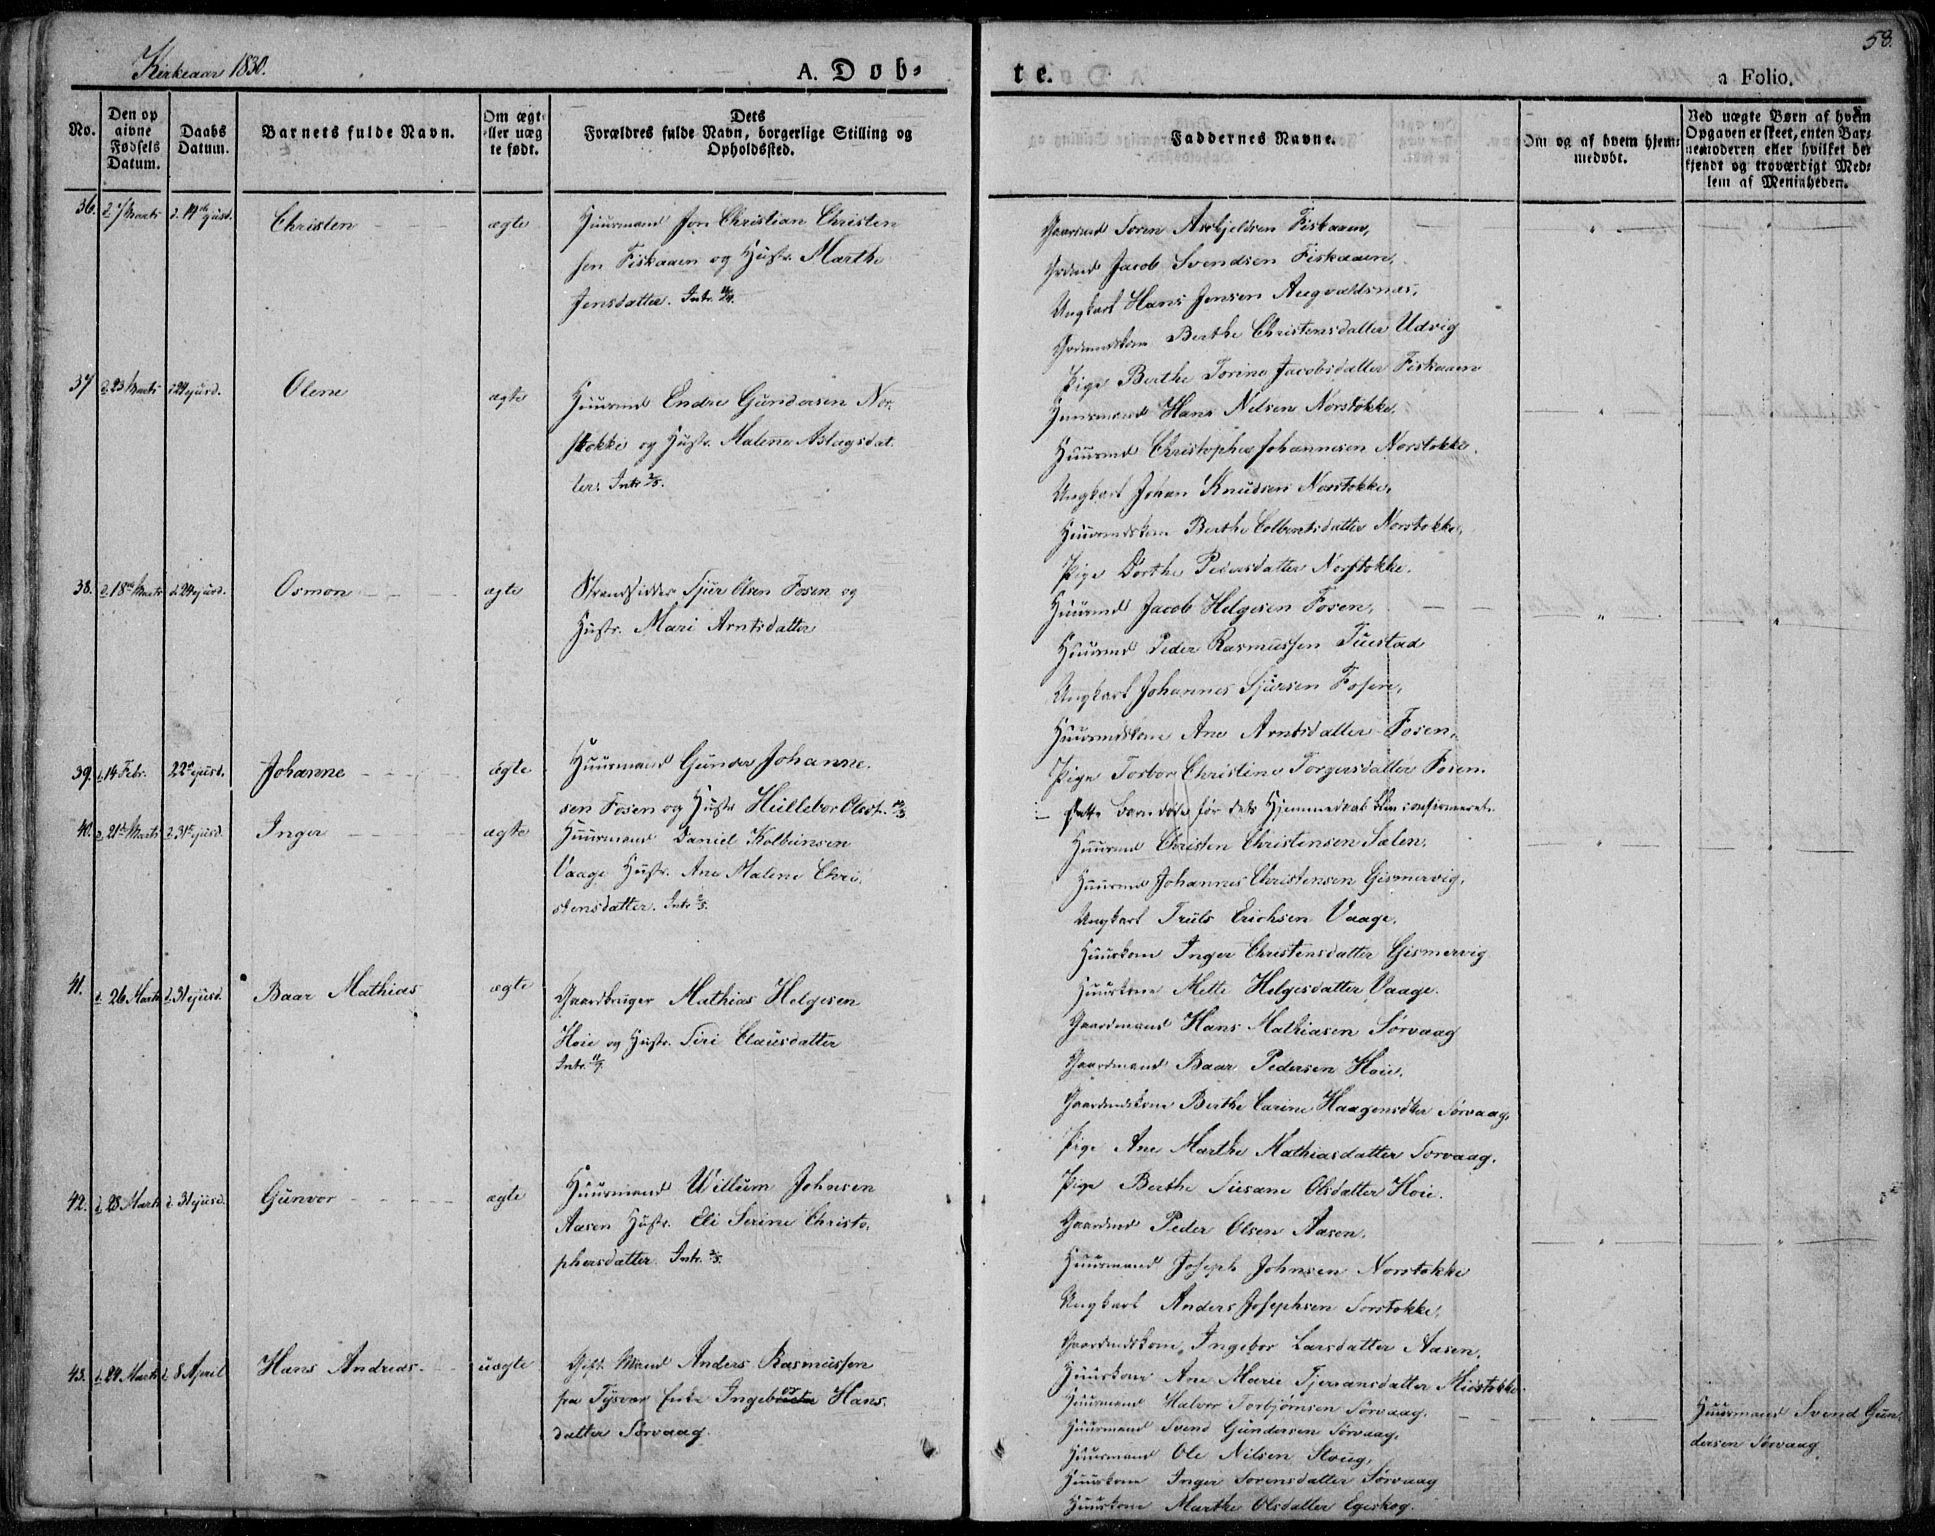 Kirkeaar 1830.
A. Døb-
te.
58.
a Folio.
No.
Den op
givne
Fødsels
Datum.
Daabs
Datum.
Barnets fulde Navn.
Om ægt
eller uæg
te født.
Dets
Forældres fulde Navn, borgerlige Stilling og
Opholdssted.
Faddernes Navne.
Om og af hvem hjem-
medøbt.
Ved uægte Børn af hvem
Opgaven er skeet, enten Bar-
nemoderen eller hvilket be-
kjendt og troværdigt Med-
lem af Menigheden.
36. d. 7 Marts d. 14de ejusd. Christen ægte
Huusmand Jon Christian Christen
sen Fiskaaen og Hustr. Marthe
Jensdatter. Intr.
Gaardmd Soren Asbjeldsen Fiskaaen,
Grdmd Jacob Svendsen Fiskaaen,
Ungkarl Hans Jensen Augvaldsnæs,
Grdmdskone Berthe Christensdatter Udvig
Pige Berthe Torine Jacobsdatter Fiskaaen
37 d. 23 Marts d. 24 ejusd. Olene ægte
Huusmd Endre Gundersen Nor-
stokke og Hustr. Malene Aslagsdat-
ter. Intr. 2/5.
Huusmand Hans Nelsen Norstokke,
Huusmd Christopher Johannesen Norstokke.
Ungkarl Johan Knudsen Norstokke,
Huusmdskone Berthe Colbentsdatter Norstokke,
Pige Dorthe Pedersdatter Norstokke.
38. d. 18de Marts d. 24 ejusd. Osmon ægte
Strandsidder Sjur Olsen Fosen og
Hustr. Mari Arntsdatter
Huusmd Jacob Helgesen Fosen,
Huusmd Peder Rasmussen Tuestad
Ungkarl Johannes Sjursen Fosen,
Huusmdskone Ane Arntsdatter Fosen,
Pige Torbor Christine Torgersdatter Fosen.
39. d. 14 Febr. 22de ejusd. Johanne ægte
Huusmand Gunder Johanne-
sen Fosen og Hustr. Hellebor Olsdt.
Dette Barn døde før dets Hjemmedaab blev confirmeret.
40. d. 21de Marts d. 31te ejusd. Inger ægte
Huusmand Daniel Kolbeinsen
Vaage Hustr. Ane Malene Chri-
stensdatter. Intr. 2/5.
Huusmd Christen Christensen Sælen,
Huusmd Johannes Christensen Gismervig,
Ungkarl Truls Erichsen Vaage,
Huuskone Inger Christensdatter Gismervig
Huuskone Mette Helgesdatter Vaage.
41. d. 26 Marts d. 31 ejusd. Baar Mathias ægte
Gaardbruger Mathias Helgesen
Hoie og Hustr. Siri Clausdatter
Intr.
Gaardmand Hans Mathiasen Sørvaag
Gaardmand Baar Pedersen Hoie.
Gaardmdskone Berthe Carine Haagensdter Sørvaag,
Pige Ane Marthe Mathiasdatter Sorvaag.
Pige Berthe Susane Olsdatter Hoie.
42. d. 28 Marts d. 31 ejusd. Gunvor ægte
Huusmand Willum Johnsen
Aasen Hustr. Eli Serine Christo-
phersdatter Intr. 2/5.
Gaardmd Peder Olsen Aasen.
Huusmand Joseph Johnsen Norstokke
Ungkarl Anders Josephsen Sorstokke,
Gaardmdskone Ingebor Larsdatter Aasen.
Huuskone Ane Marie Tjerransdatter Midstokke.
43. d. 24 Marts d. 8 April Hans Andreas uægte
Gift Mand Anders Rasmussen
fra Tysvær Enke Ingebor Hans-
datter Sorvaag.
Huusmand Halvor Torbjørnsen Sørvaag,
Huusmand Svend Gundersen Sørvaag,
Huusmand Ole Nilsen Stong,
Huuskone Inger Sorensdatter Sørvaag
Huuskone Marthe Olsdatter Egeskog.
Huusmand Svend Gun-
dersen Sørvaag